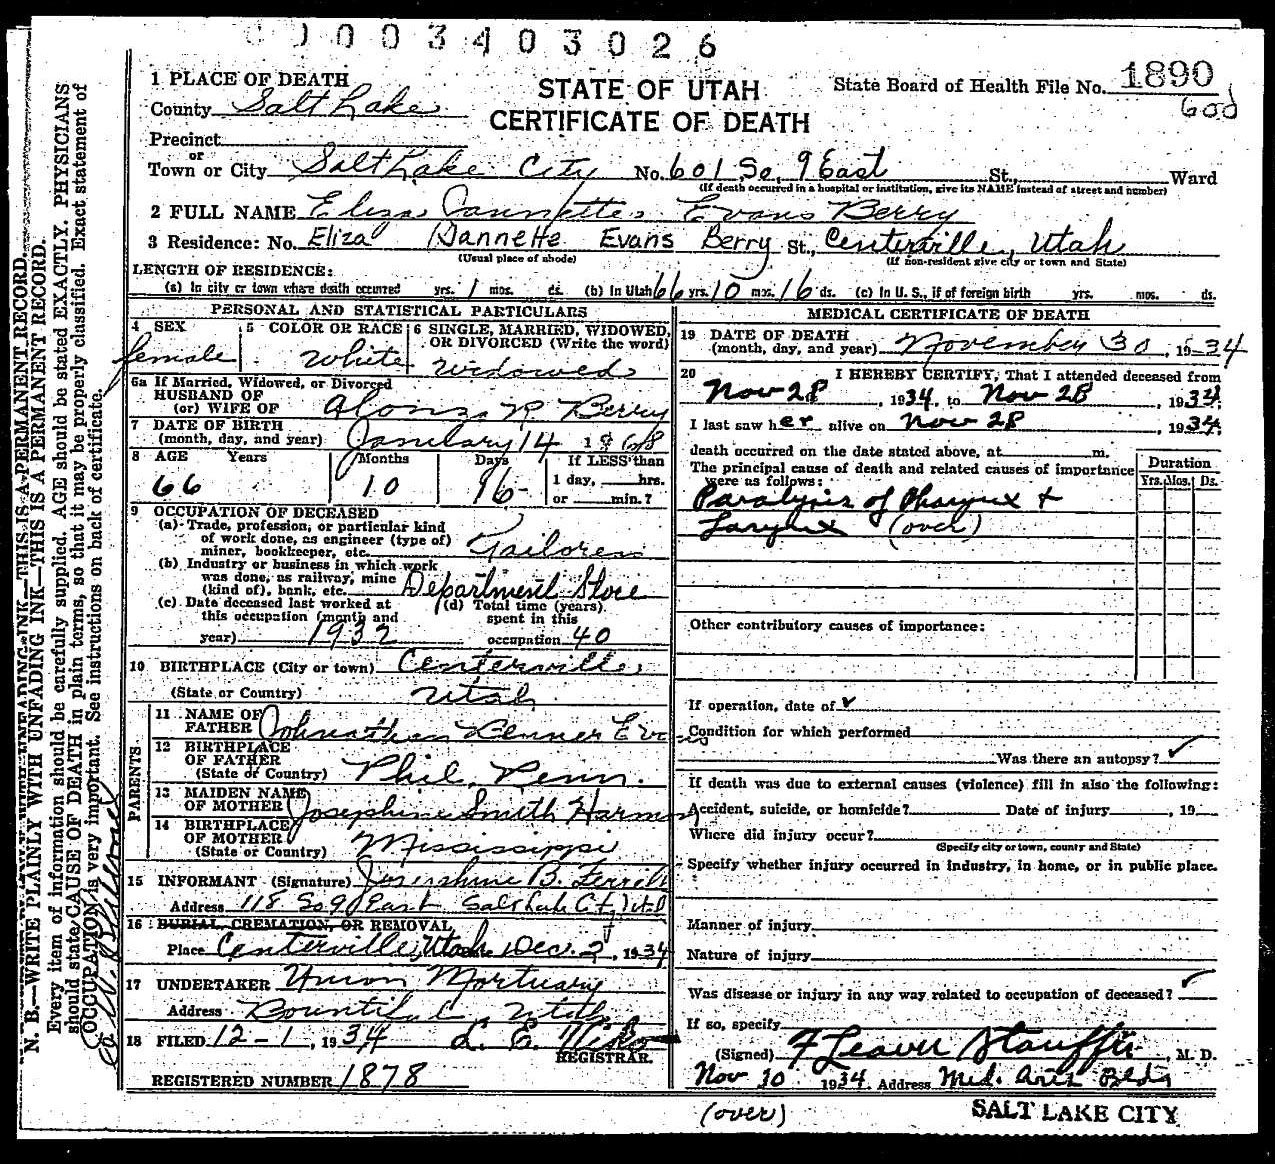 0003403026
1 PLACE OF DEATH
STATE OF UTAH
CERTIFICATE OF DEATH
State Board of Health File No. 1890
County Salt Lake
Precinct
or
Town or City Salt Lake City No. 601 So. 9 East St., Ward
(If death occurred in a hospital or institution, give its NAME instead of street and number)
2 FULL NAME Eliza Jannette Evans Berry
3 Residence: No. Eliza Jannette Evans Berry St., Centerville, Utah
(Usual place of abode) (If non-resident give city or town and State)
LENGTH OF RESIDENCE:
(a) In city or town where death occurred yrs. 1 mos. ds. (b) In Utah 66 yrs. 10 mos. 16 ds. (c) In U. S., if of foreign birth yrs. mos. ds.
PERSONAL AND STATISTICAL PARTICULARS
4 SEX female
5 COLOR OR RACE White
6 SINGLE, MARRIED, WIDOWED, OR DIVORCED (Write the word) widowed
6a If Married, Widowed, or Divorced
HUSBAND OF
(or) WIFE OF Alonzo R. Berry
7 DATE OF BIRTH
(month, day, and year) January 14 1868
8 AGE Years Months Days If LESS than
66 10 16 1 day, hrs.
or min.?
9 OCCUPATION OF DECEASED
(a) Trade, profession, or particular kind
of work done, as engineer (type of)
miner, bookkeeper, etc. Tailoress
(b) Industry or business in which work
was done, as railway, mine
(kind of), bank, etc. Department Store
(c) Date deceased last worked at
this occupation (month and
year) 1932
(d) Total time (years)
spent in this
occupation 40
10 BIRTHPLACE (City or town) Centerville
(State or Country) Utah
PARENTS
11 NAME OF
FATHER Johnathan Benner Evans
12 BIRTHPLACE
OF FATHER
(State or Country) Phil. Penn.
13 MAIDEN NAME
OF MOTHER Josephine Smith Harmon
14 BIRTHPLACE
OF MOTHER
(State or Country) Mississippi
15 INFORMANT (Signature) Josephine B. Ferrell
Address 118 So 9 East Salt Lake City
16 BURIAL, CREMATION, OR REMOVAL
Place Centerville, Utah Dec. 2, 1934
17 UNDERTAKER Union Mortuary
Address Bountiful, Utah
18 FILED 12-1, 1934
REGISTRAR.
REGISTERED NUMBER 1878
MEDICAL CERTIFICATE OF DEATH
19 DATE OF DEATH
(month, day, and year) November 30, 1934
20 I HEREBY CERTIFY, That I attended deceased from
Nov 28, 1934, to Nov 28, 1934.
I last saw her alive on Nov 28, 1934.
death occurred on the date stated above, at m.
The principal cause of death and related causes of importance
were as follows:
Duration
Yrs. Mos. Ds.
Paralysis of Pharynx +
Larynx (over)
Other contributory causes of importance:
If operation, date of ✓
Condition for which performed
Was there an autopsy? ✓
If death was due to external causes (violence) fill in also the following:
Accident, suicide, or homicide? Date of injury , 19
Where did injury occur?
(Specify city or town, county and State)
Specify whether injury occurred in industry, in home, or in public place.
Manner of injury
Nature of injury
Was disease or injury in any way related to occupation of deceased? ✓
If so, specify
(Signed) F Leaver Stauffer, M. D.
Nov 30 1934 Address Med. Arts Bldg
(over) SALT LAKE CITY
N. B.—WRITE PLAINLY WITH UNFADING INK—THIS IS A PERMANENT RECORD.
Every item of information should be carefully supplied. AGE should be stated EXACTLY. PHYSICIANS
should state CAUSE OF DEATH in plain terms, so that it may be properly classified. Exact statement of
OCCUPATION is very important. See instructions on back of certificate.